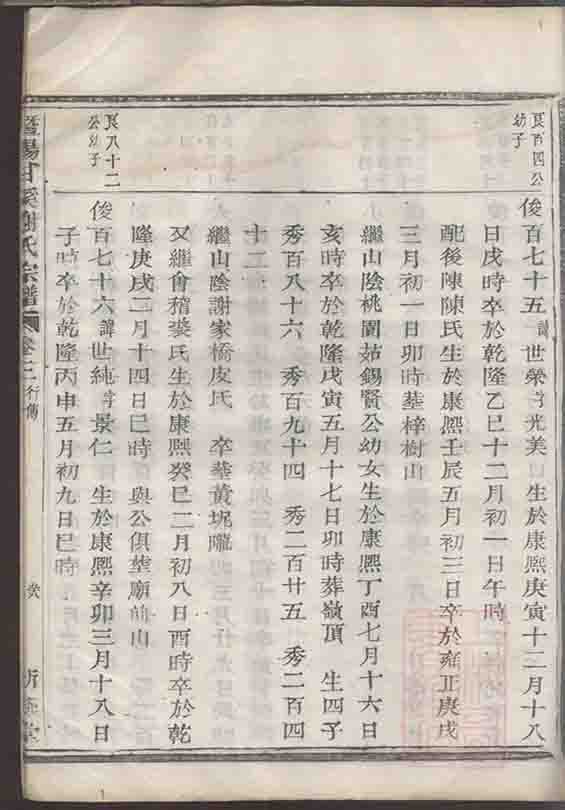 良百四公
幼子
俊百七十五諱世榮字光美 生於康熙庚寅十二月十八
日戌時卒於乾隆乙巳十二月初一日午時
配後陳陳氏生於康熙壬辰五月初三日卒於雍正庚戌
三月初一日卯時塟梓樹山
繼山陰桃園姑錫賢公幼女生於康熙丁酉七月十六日
亥時卒於乾隆戊寅五月十七日卯時葬嶺頂 生四子
秀百八十六 秀百九十四 秀二百廿五 秀二百四
十二
繼山陰謝家橋皮氏 卒塟黃坭隴
又繼會稽裘氏生於康熙癸巳二月初八日酉時卒於乾
隆庚戌二月十四日巳時 與公俱塟廟前山
良八十二
公幼子
俊百七十六諱世純字景仁 生於康熙辛卯三月十八日
子時卒於乾隆丙申五月初九日巳時
暨陽甘溪謝氏宗譜 卷二 行傳